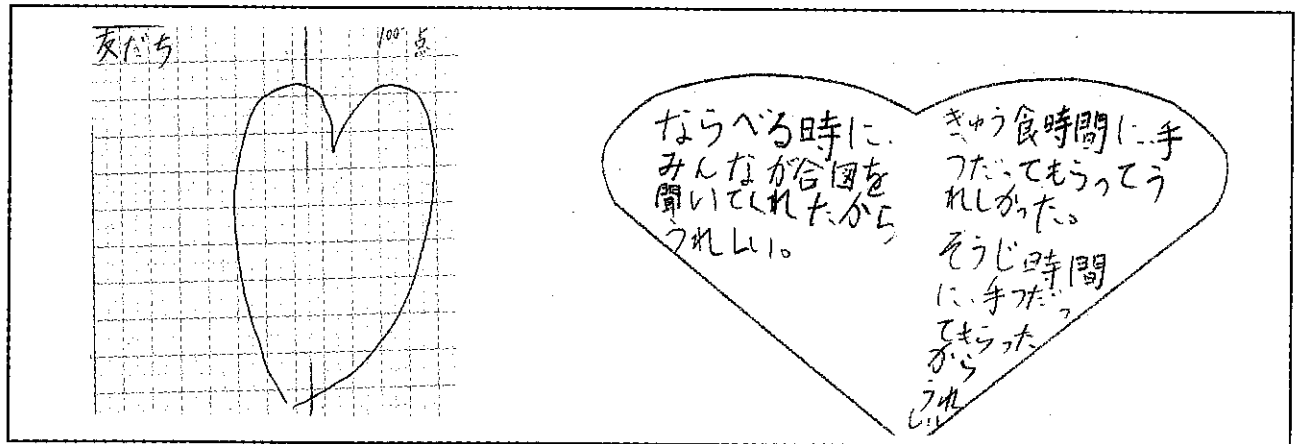 友だち
100点
ならべる時に、
みんなが合図を
聞いてくれたから
うれしい。
きゅう食時間に、手
つだってもらってう
れしかった。
そうじ時間
に、手つだっ
てもらった
から
うれ
しい